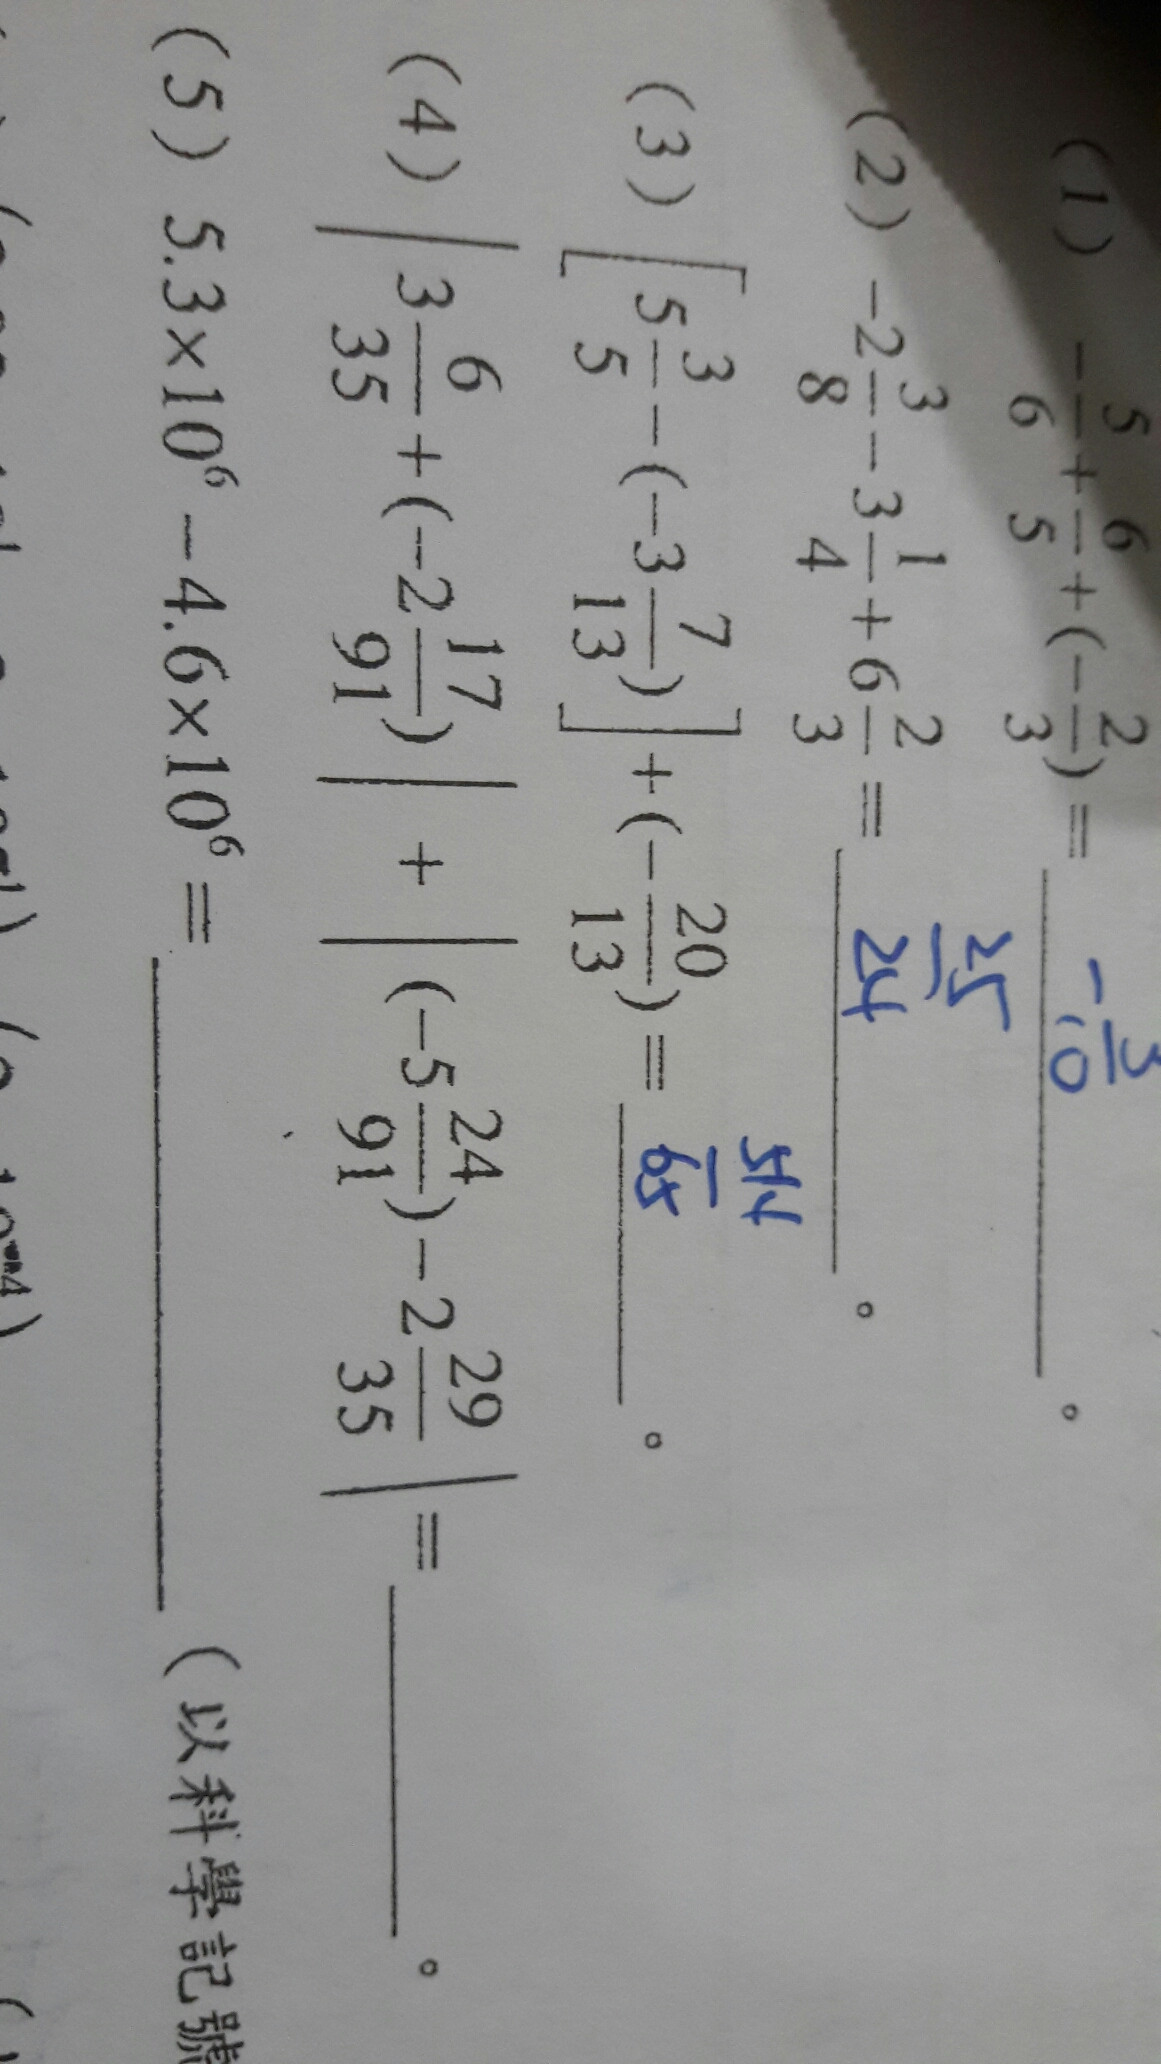 (1) -5/6+6/5+(-2/3)= -3/10 。
(2) -2 3/8-3 1/4+6 2/3= 25/24 。
(3) [5 3/5-(-3 7/13)]+(-20/13)= 514/65 。
(4) |3 6/35+(-2 17/91)|+|(-5 24/91)-2 29/35|= 。
(5) 5.3×10⁶-4.6×10⁶= (以科學記號